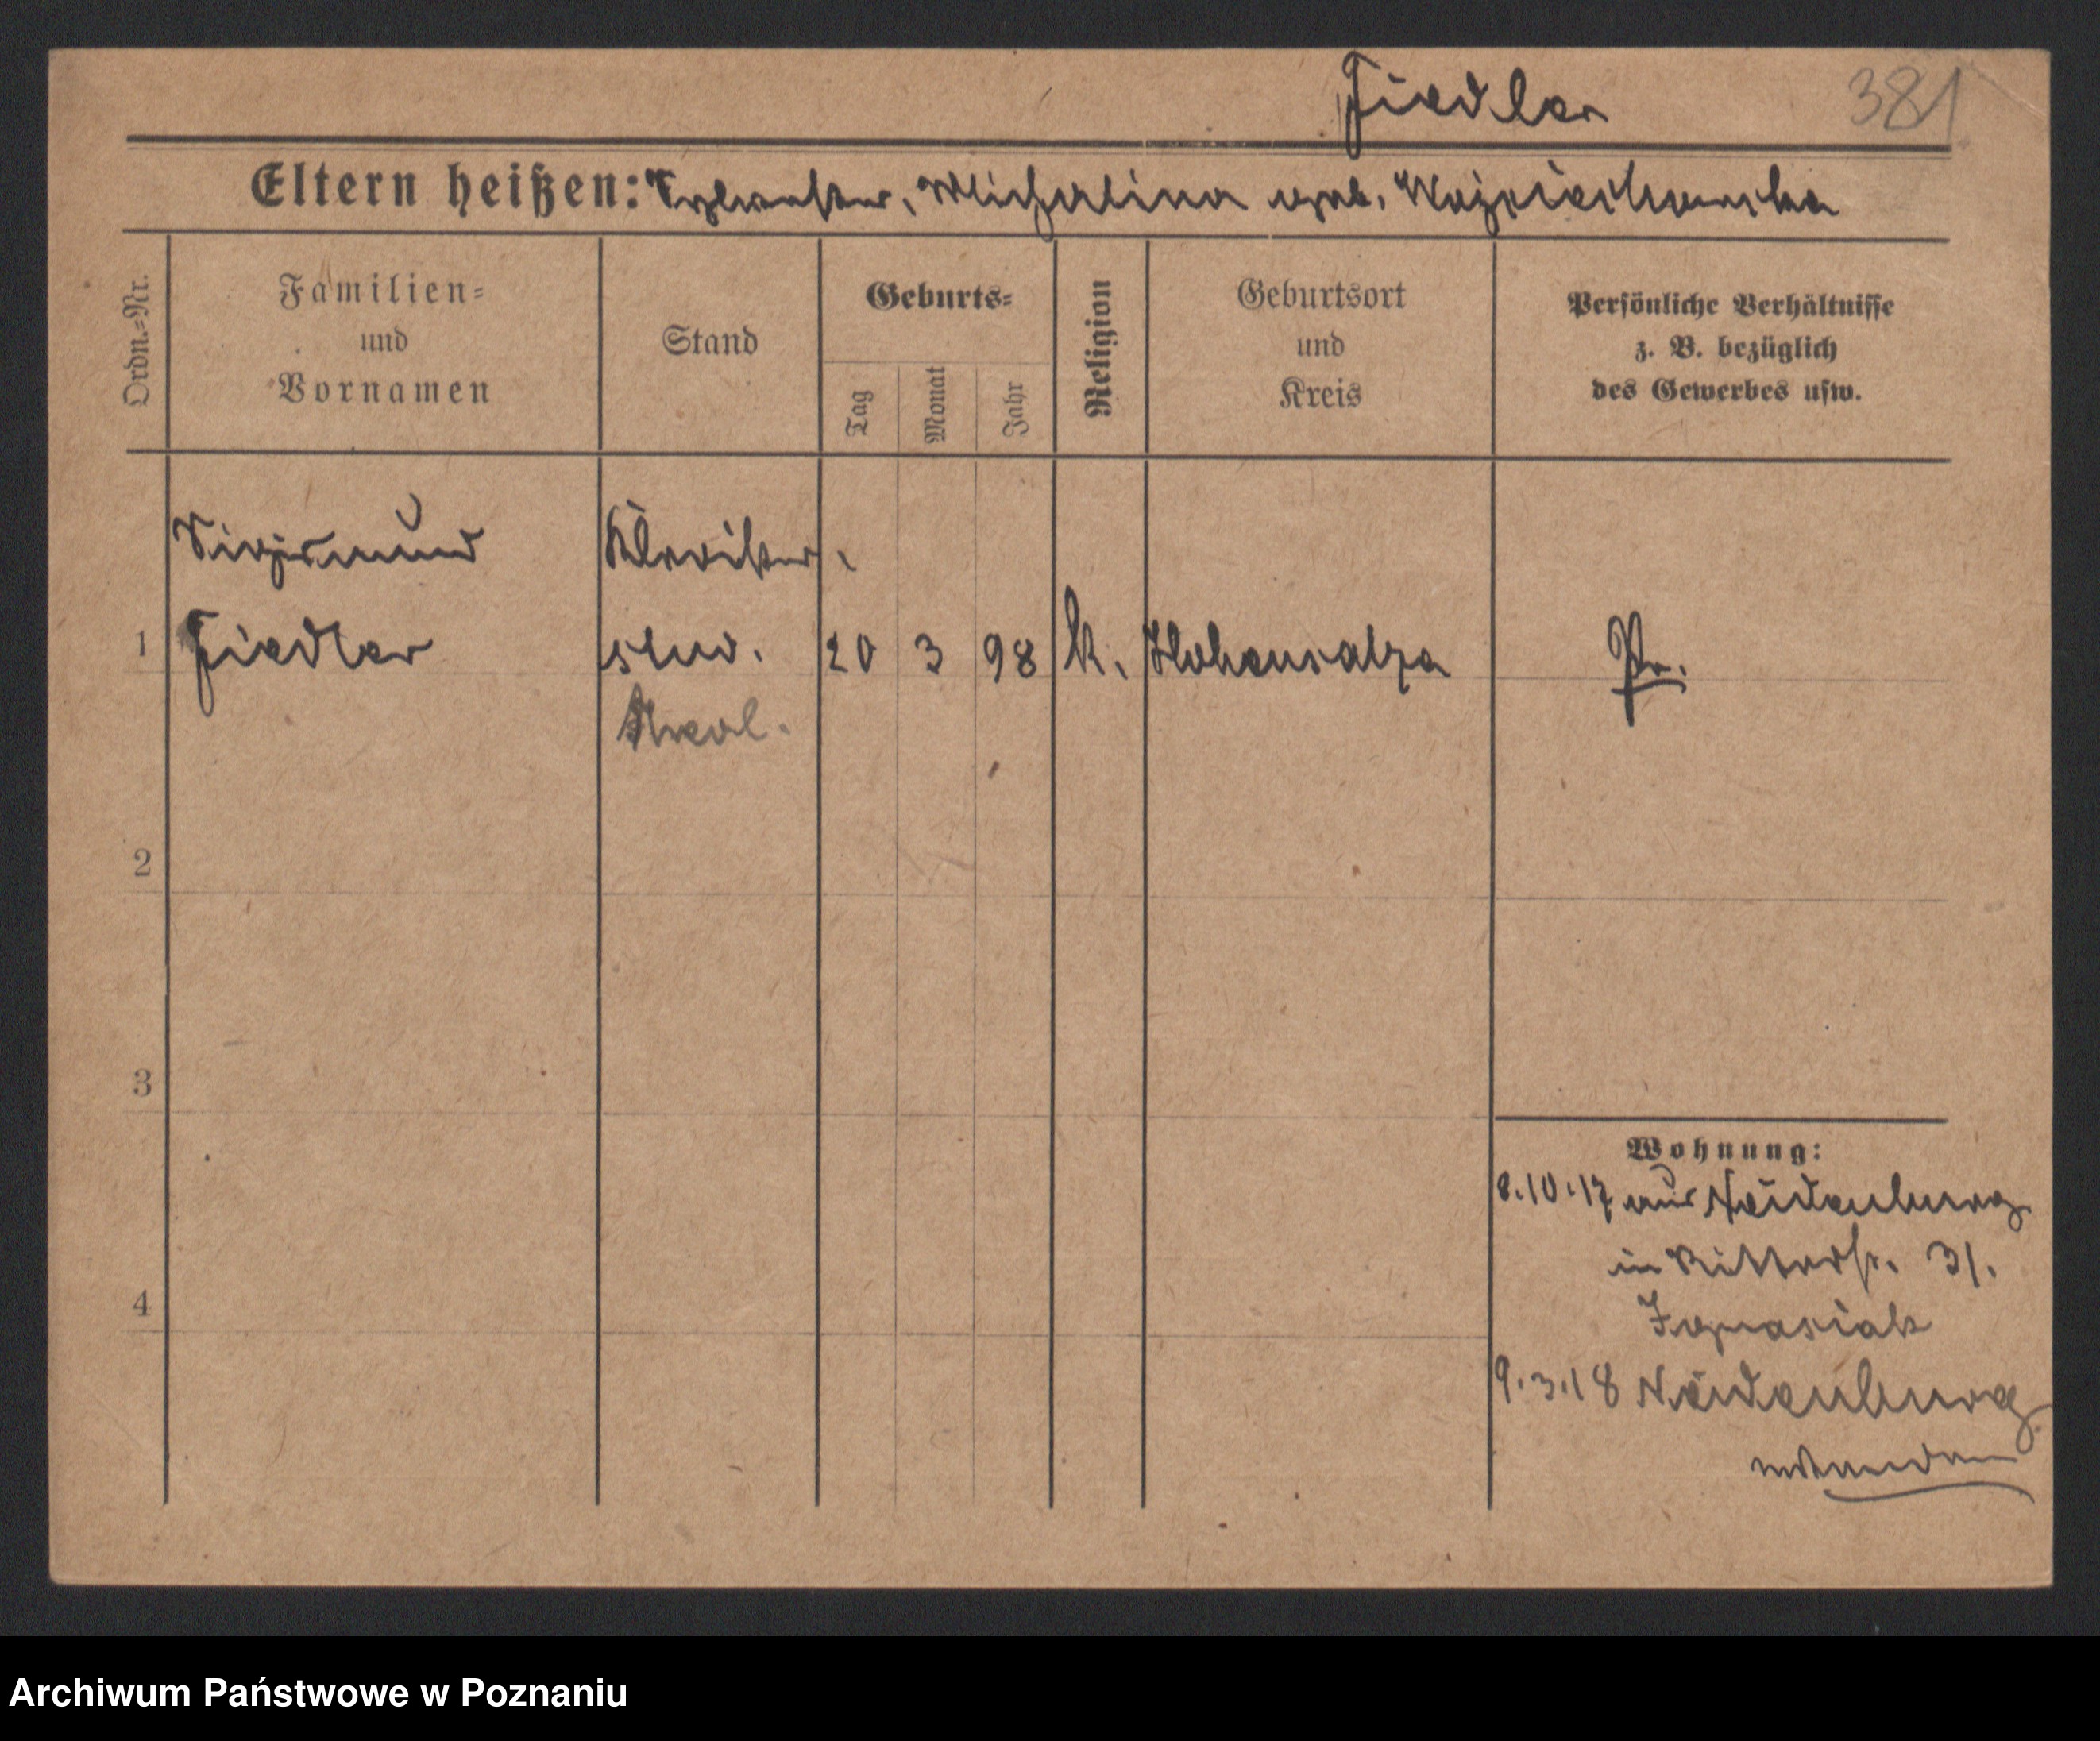 Fiedler 381
Eltern heißen: Sylvester, Michalina geb.
Ordn.=Nr.
Familien=
und
Vornamen
Stand
Geburts=
Tag
Monat
Jahr
Religion
Geburtsort
und
Kreis
Persönliche Verhältnisse
z. B. bezüglich
des Gewerbes usw.
Sigismund
1 Fiedler stud. 20 3 98 k. Hohensalza Pr.
Theol.
2
3
Wohnung:
8.10.17 aus Neidenburg
in Ritterstr. 31.
4
Ignasiak
9.3.18 Neidenburg
Archiwum Państwowe w Poznaniu